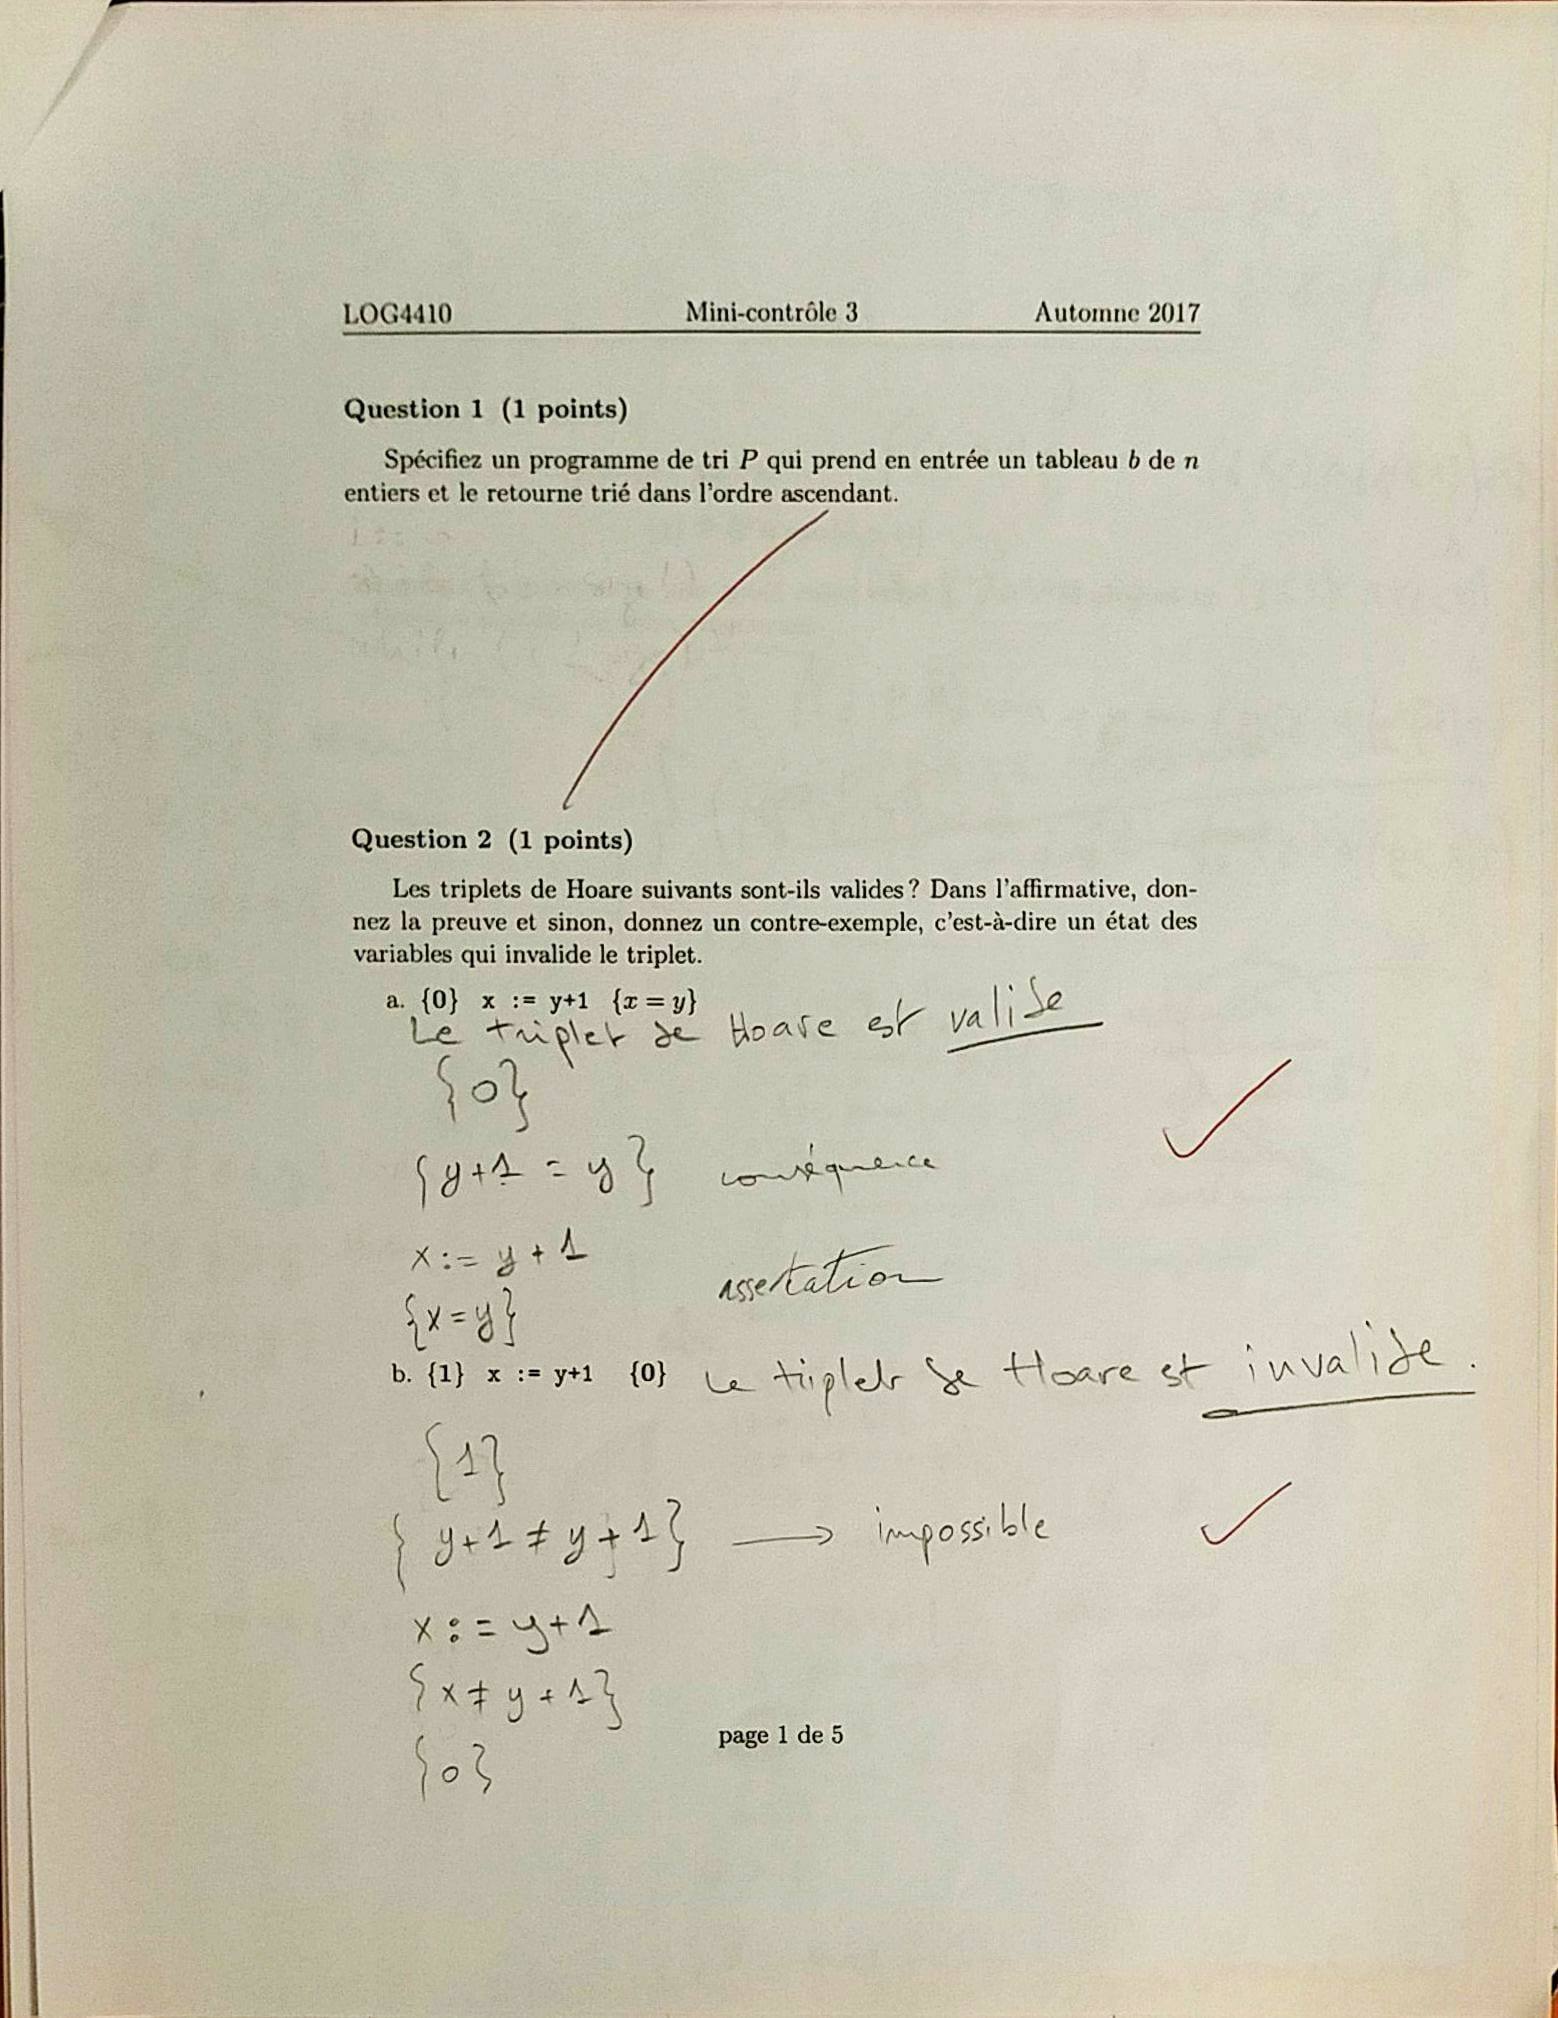 LOG4410 Mini-contrôle 3 Automne 2017
Question 1 (1 points)
Spécifiez un programme de tri P qui prend en entrée un tableau b de n
entiers et le retourne trié dans l'ordre ascendant.
Question 2 (1 points)
Les triplets de Hoare suivants sont-ils valides ? Dans l'affirmative, don-
nez la preuve et sinon, donnez un contre-exemple, c'est-à-dire un état des
variables qui invalide le triplet.
a. {0} x := y+1 {x = y}
Le triplet de Hoare est valide
{0}
{y+1 = y} conséquence
x := y + 1
assertation
{x = y}
b. {1} x := y+1 {0} Le triplet de Hoare est invalide.
{1}
{y+1 ≠ y+1} → impossible
x := y+1
{x ≠ y + 1}
page 1 de 5
{0}